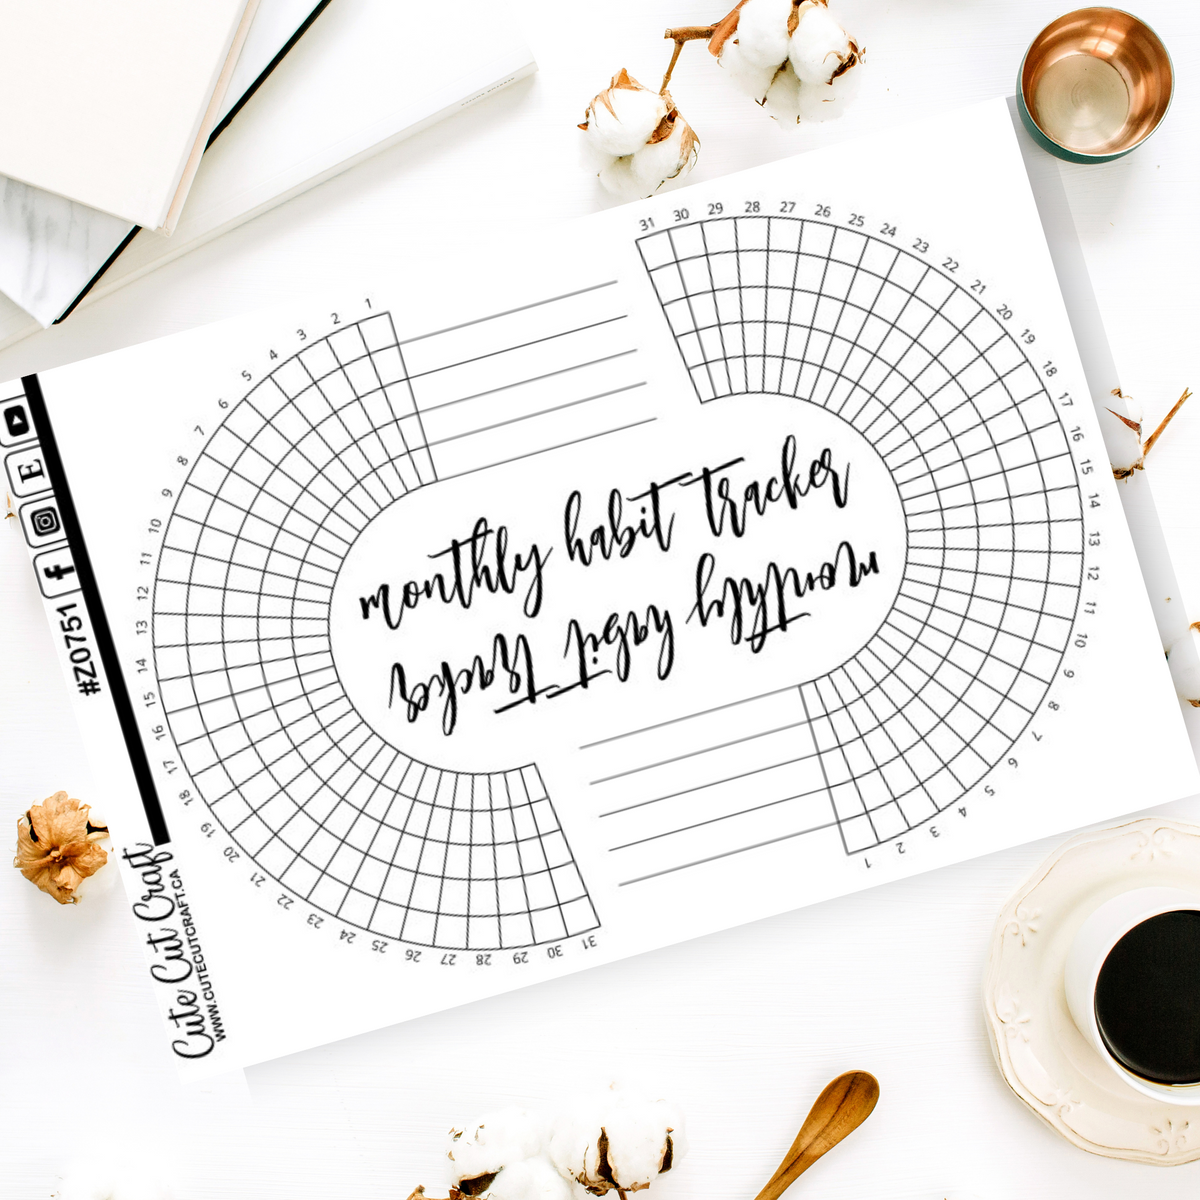 monthly habit tracker
monthly habit tracker
1
2
3
4
5
6
7
8
9
10
11
12
13
14
15
16
17
18
19
20
21
22
23
24
25
26
27
28
29
30
31
31
30
29
28
27
26
25
24
23
22
21
20
19
18
17
16
15
14
13
12
11
10
9
8
7
6
5
4
3
2
1
E
f
#Z0751
Cute Cut Craft
WWW.CUTECUTCRAFT.CA